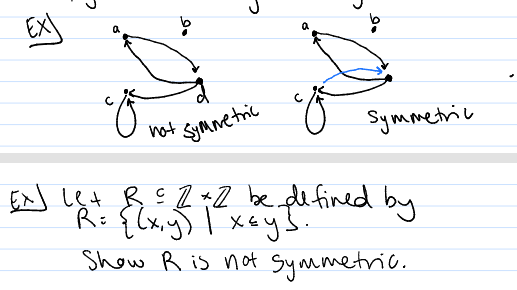 Ex)
a b a b
c d c
not symmetric symmetric
Ex) Let R ⊆ ℤ×ℤ be defined by
R = {(x,y) | x ≤ y}.
Show R is not symmetric.